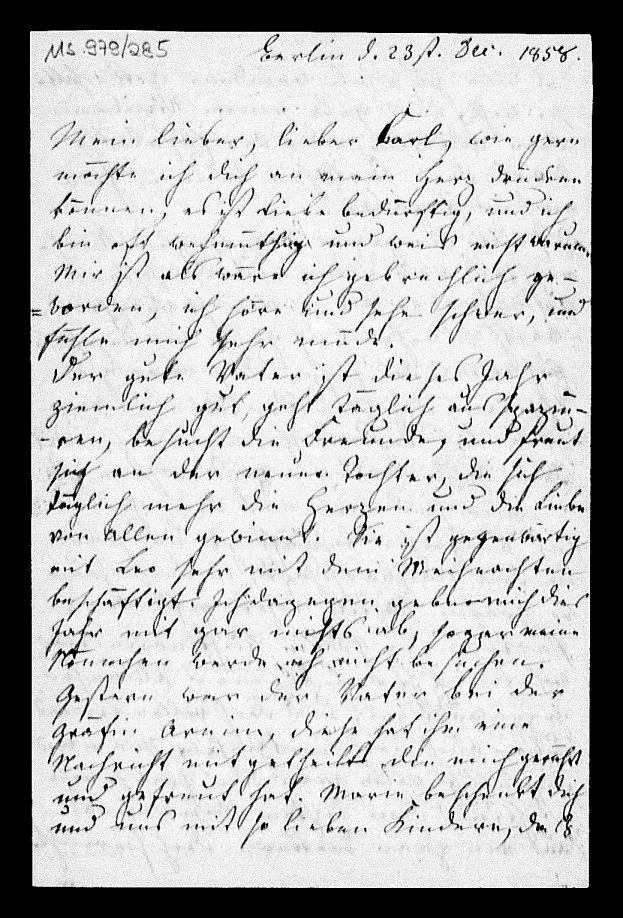 Ms. 979/285
Berlin d. 23st. Dec. 1858.
Mein lieber, lieber Carl, wie gern
möchte ich dich an mein Herz drücken
können, es ist liebe bedürftig, und ich
bin oft wehmüthig und weis nicht warum
Mir ist als wäre ich gebrechlich ge-
=worden, ich höre und sehe schwer, und
fühle mich sehr müde.
Der gute Vater ist dieses Jahr
ziemlich gut, geht täglich aus spazie-
-ren, besucht die Freunde, und freut
sich an der neuen Tochter, die sich
täglich mehr die Herzen und die Liebe
von allen gewinnt. Sie ist gegenwärtig
mit Leo sehr mit dem Weihnachten
beschäftigt. Ich dagegen gebe mich dies
Jahr mit gar nichts ab, sogar meine
werde ich nicht besuchen.
Gestern war der Vater bei der
Gräfin Arnim, diese hat ihm eine
Nachricht mitgetheilt die mich gerührt
und gefreut hat. Marie beschenkt dich
und uns mit so lieben Kindern, die